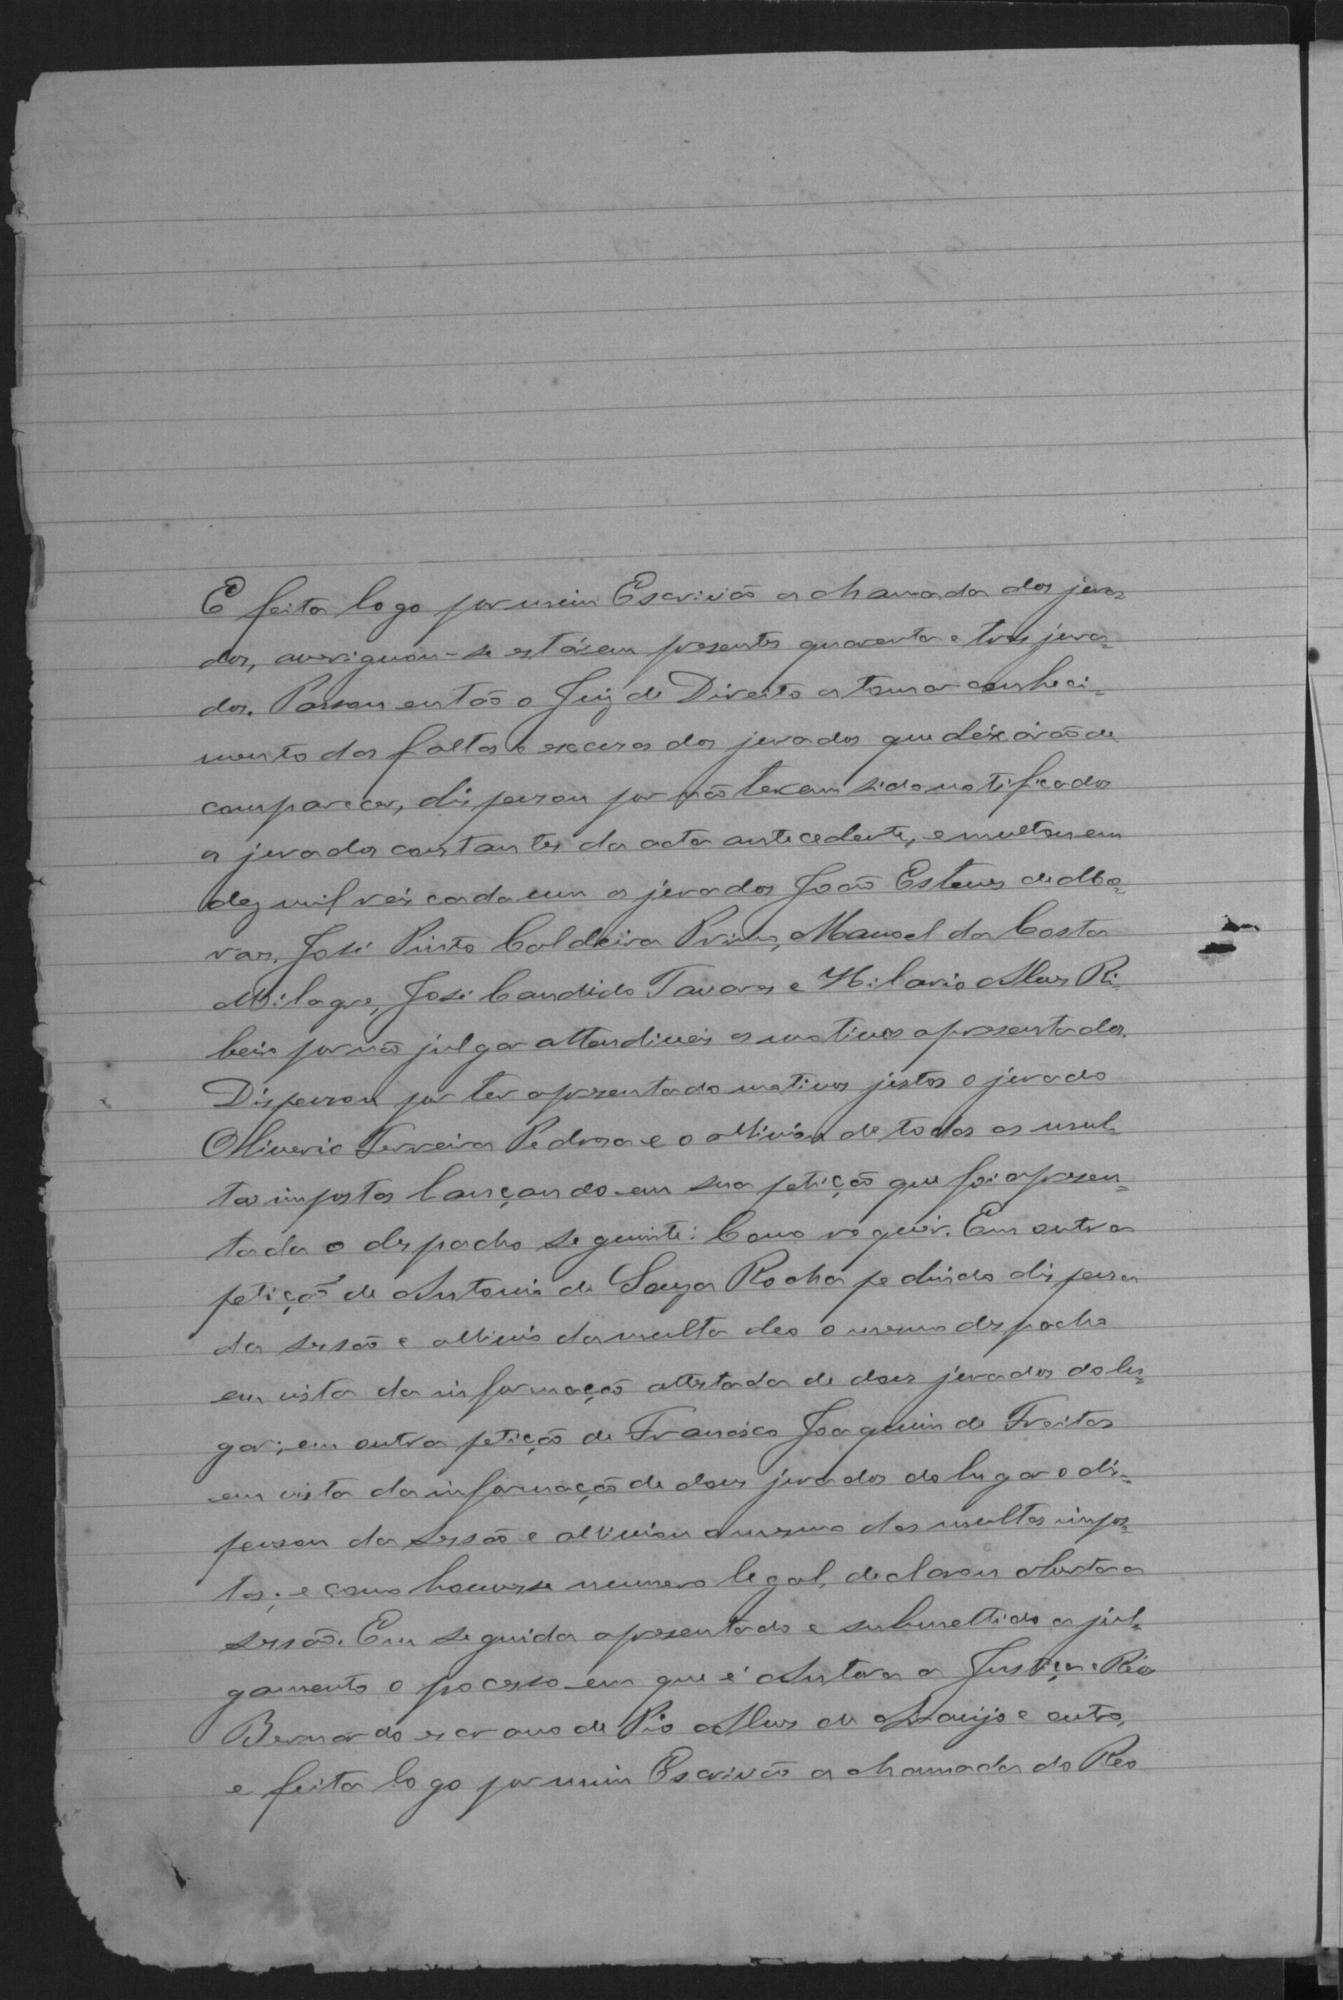 E feita logo por mim Escrivão a chamada dos jura-
dos, averiguou-se estárem presentes quarenta e tres jura-
dos. Passou então o Juiz de Direito a tomar conheci-
mento das faltas e escusas dos jurados que deixárão de
comparecer, dispensou por não terem sido notificados
os jurados constantes da acta antecedente, e multou em
dez mil reis cada um os jurados João Esteves de Alva-
José Pinto Caldeira Primo, Manoel da Costa
Milagre, José Candido Tavares e Hilario Alves Ri-
beiro por não julgar attendiveis os motivos apresentados.
Dispensou por ter apresentado motivos justos o jurado
Oliverio Ferreira Pedrosa e o alliviou de todas as mul-
tas impostas lançando em sua petição que foi apresen-
tada o despacho seguinte: Como requer. Em outra
petição de Antonio de Souza Rocha pedindo dispensa
da sessão e allivio da multa deo o mesmo despacho
em vista da informação attestada de dous jurados do lu-
gar; em outra petição de Francisco Joaquim de Freitas
em vista da informação de dous jurados do lugar o dis-
pensou da sessão e alliviou o mesmo das multas impos-
tas; e como houvesse numero legal, declarou aberta a
sessão. Em seguida apresentado e submettido a jul-
gamento o processo em que é Autora a Justiça e Réo
Bernardo escravo de Pio Alves de Araujo e outro,
e feita logo por mim Escrivão a chamada do Reo